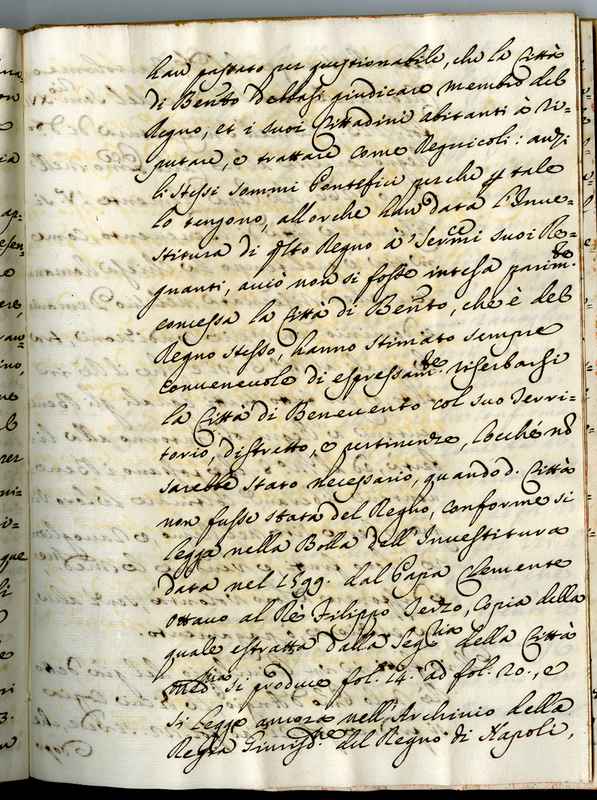 han passato per questionabile, che la Città
di Ben:to debbasi giudicare membro del
Regno, et i suoi Cittadini abitanti à ri=
putare, e trattare come Regnicoli: anzi
li stessi Sommi Pontefici perche p tale
lo tengono, allorche han data l'Inue=
stitura di q'sto Regno à Ser:mi suoi Re=
gnanti, acciò non si fosse intesa parim:te
concessa la Città di Ben:to, che è del
Regno stesso, hanno stimato sempre
convenevole di espressam:te riserbarsi
la Città di Benevento col suo Terri=
torio, distretto, e pertinenze, locché nõ
sarebbe stato necessario, quando d. Città
non fusse stata del Regno, conforme si
legge nella Bolla dell'Investitura
data nel 1599. dal Papa Clemente
ottauo al Rè Filippo Terzo, Copia della
quale estratta dalla Seg:ria della Città
med:ma si produce fol. 14. ad fol. 20., e
si legge ancora nell'Archivio della
Regia Giurisd:ne del Regno di Napoli,